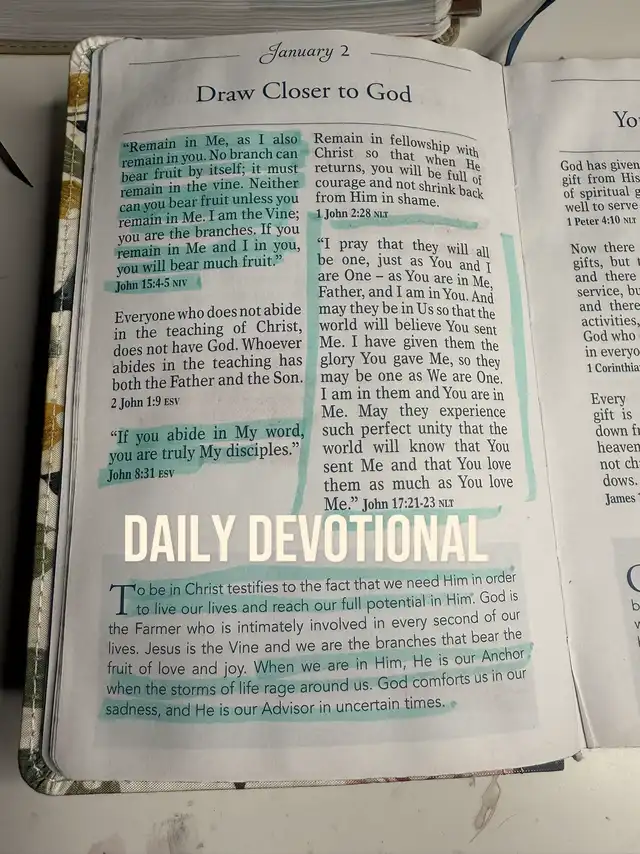 January 2
Draw Closer to God
"Remain in Me, as I also
remain in you. No branch can
bear fruit by itself; it must
remain in the vine. Neither
can you bear fruit unless you
remain in Me. I am the Vine;
you are the branches. If you
remain in Me and I in you,
you will bear much fruit."
John 15:4-5 NIV
Everyone who does not abide
in the teaching of Christ,
does not have God. Whoever
abides in the teaching has
both the Father and the Son.
2 John 1:9 ESV
"If you abide in My word,
you are truly My disciples."
John 8:31 ESV
Remain in fellowship with
Christ so that when He
returns, you will be full of
courage and not shrink back
from Him in shame.
1 John 2:28 NLT
"I pray that they will all
be one, just as You and I
are One – as You are in Me,
Father, and I am in You. And
may they be in Us so that the
world will believe You sent
Me. I have given them the
glory You gave Me, so they
may be one as We are One.
I am in them and You are in
Me. May they experience
such perfect unity that the
world will know that You
sent Me and that You love
them as much as You love
Me." John 17:21-23 NLT
DAILY DEVOTIONAL
To be in Christ testifies to the fact that we need Him in order
to live our lives and reach our full potential in Him. God is
the Farmer who is intimately involved in every second of our
lives. Jesus is the Vine and we are the branches that bear the
fruit of love and joy. When we are in Him, He is our Anchor
when the storms of life rage around us. God comforts us in our
sadness, and He is our Advisor in uncertain times.
God has given
gift from His
of spiritual g
well to serve
1 Peter 4:10 NLT
Now there
gifts, but t
and there
service, bu
and there
activities,
God who
in everyo
1 Corinthia
Every
gift is
down fr
heaven
not ch
dows.
James